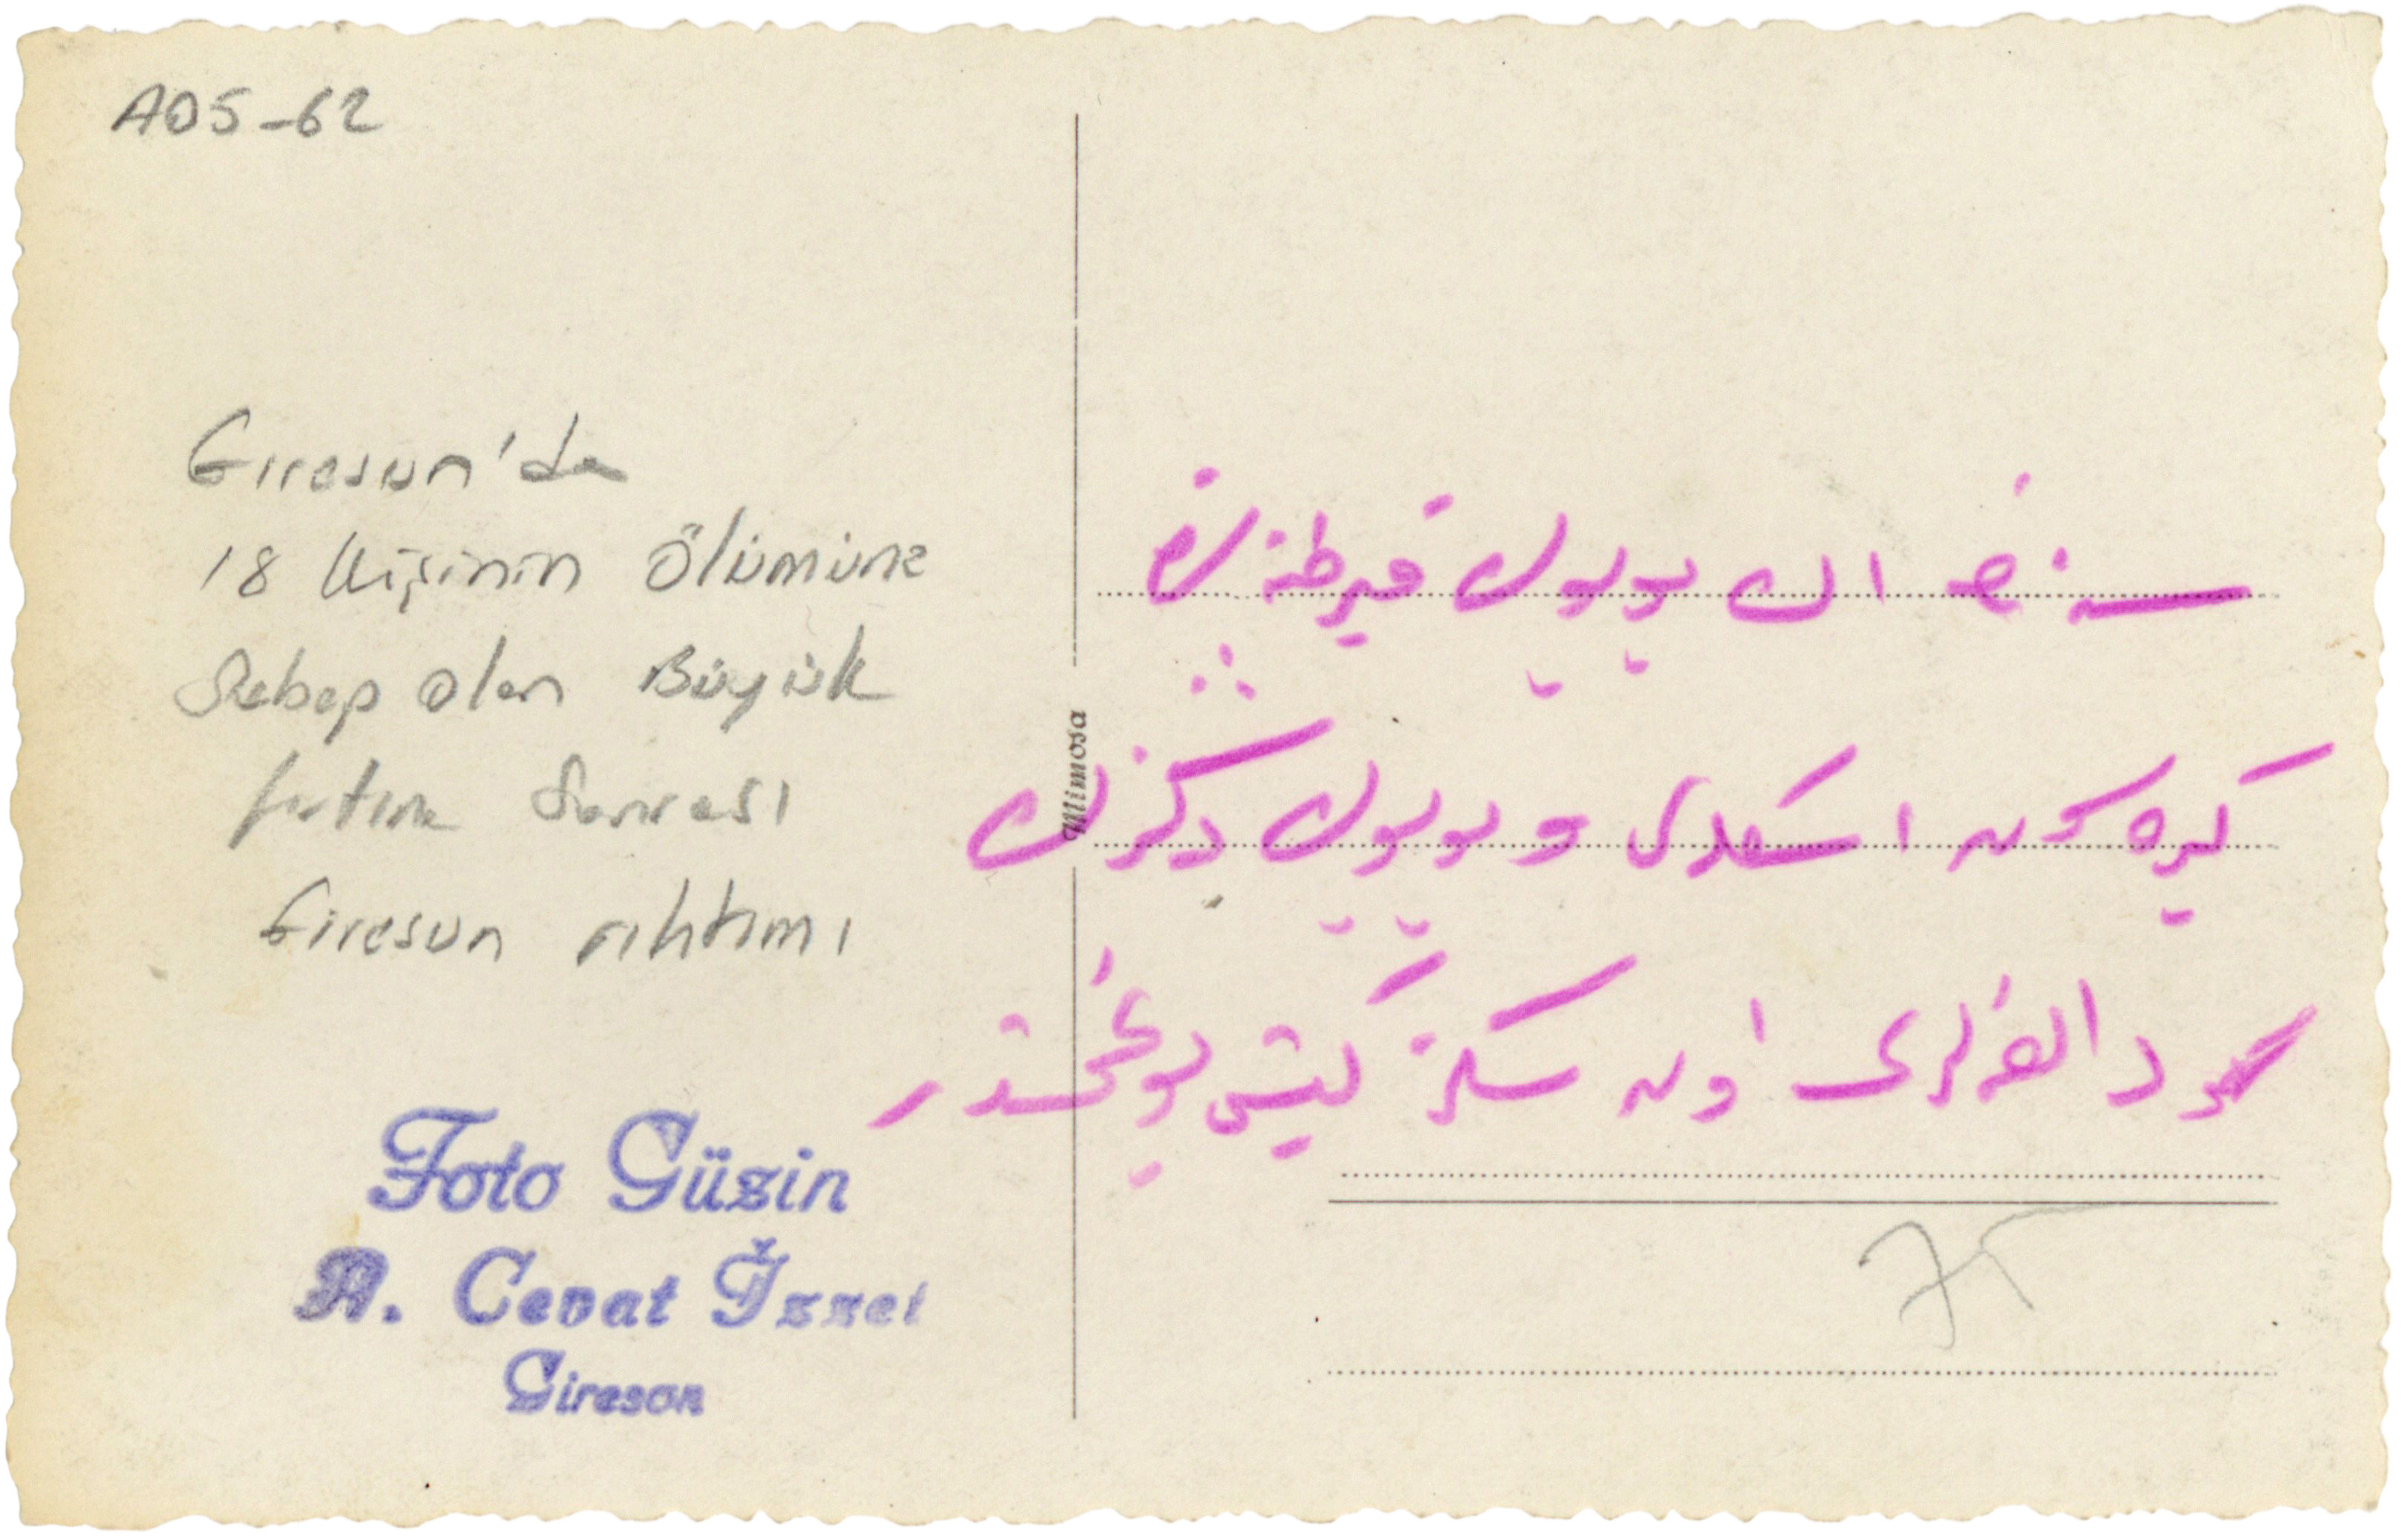 A05-62
Giresun'da
18 kişinin ölümüne
Sebep olan Büyük
fırtına Sonrası
Giresun rıhtımı
Foto Güzin
A. Cevat İzzet
Giresun
Mimosa
سنه‌نك اك بویوك فیرطنه‌سی
كیره‌سون اسكله‌سی و بویوك دكزك
اون سكز كیشی بوغمشدر
75